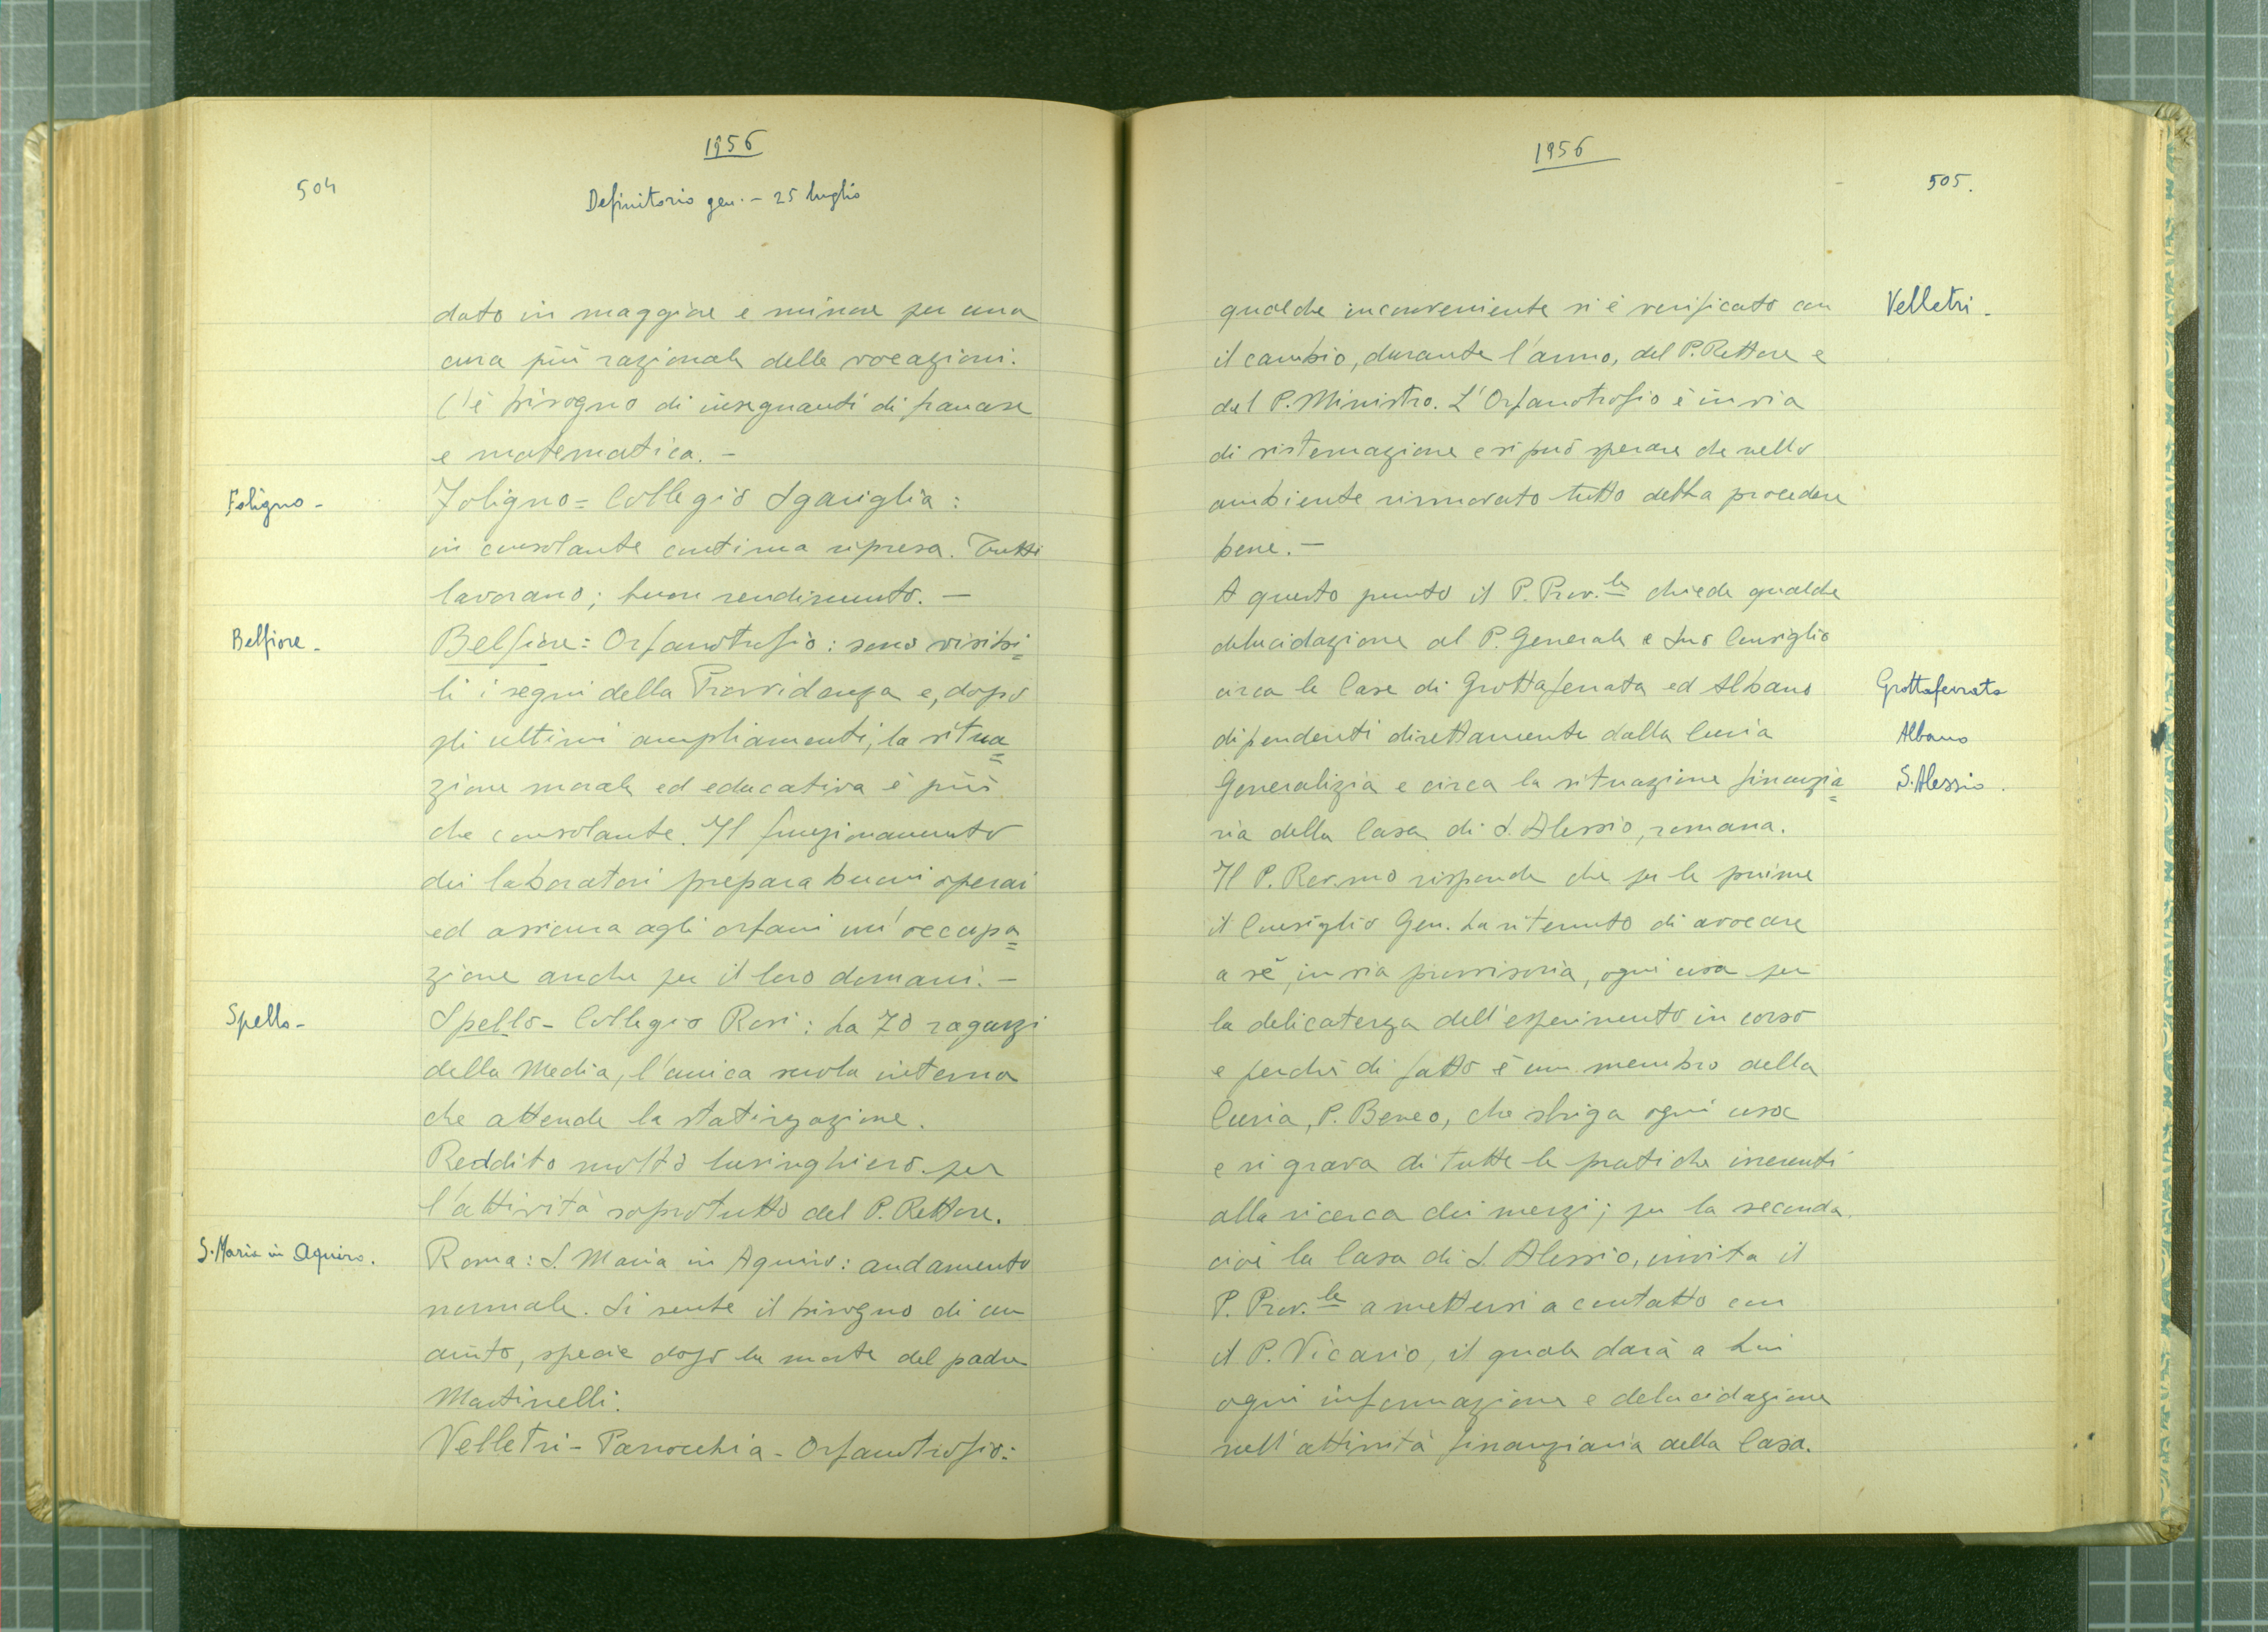 1956
504
Definitorio gen. - 25 luglio
dato in maggiore e minore per una
cura più razionale delle vocazioni.
C'è bisogno di insegnanti di francese
e matematica. -
Foligno -
Foligno = Collegio Sgariglia :
in consolante continua ripresa. Tutti
lavorano; buon rendimento. -
Belfiore -
Belfiore = Orfanotrofio : sono visibi=
li i segni della Provvidenza e, dopo
gli ultimi ampliamenti, la situa=
zione morale ed educativa è più
che consolante. Il funzionamento
dei laboratori prepara buoni operai
ed assicura agli orfani un'occupa=
zione anche per il loro domani. -
Spello -
Spello - Collegio Rosi : ha 70 ragazzi
della Media, l'unica scuola interna
che attende la statizzazione.
Reddito molto lusinghiero per
l'attività soprotutto del P. Rettore.
S. Maria in Aquiro.
Roma : S. Maria in Aquiro : andamento
normale. Si sente il bisogno di un
aiuto, specie dopo la morte del padre
Martinelli.
Velletri - Parrocchia - Orfanotrofio :
1956
505.
Velletri -
qualche inconveniente si è verificato con
il cambio, durante l'anno, del P. Rettore e
del P. Ministro. L'Orfanotrofio è in via
di sistemazione e si può sperare che nello
ambiente rinnovato tutto debba procedere
bene. -
A questo punto il P. Prov.le chiede qualche
delucidazione al P. Generale e Suo Consiglio
circa le Case di Grottaferrata ed Albano
Grottaferrata
dipendenti direttamente dalla Curia
Albano
Generalizia e circa la situazione finanzia=
S. Alessio.
ria della Casa di S. Alessio, romana.
Il P. Rev.mo risponde che per le prime
il Consiglio Gen. ha ritenuto di avocare
a sè, in via provvisoria, ogni cosa per
la delicatezza dell'esperimento in corso
e perchè di fatto è un membro della
Curia, P. Beneo, che sbriga ogni cosa
e si grava di tutte le pratiche inerenti
alla ricerca dei mezzi; per la seconda,
cioè la Casa di S. Alessio, invita il
P. Prov.le a mettersi a contatto con
il P. Vicario, il quale darà a Lui
ogni informazione e delucidazione
sull'attività finanziaria della Casa.